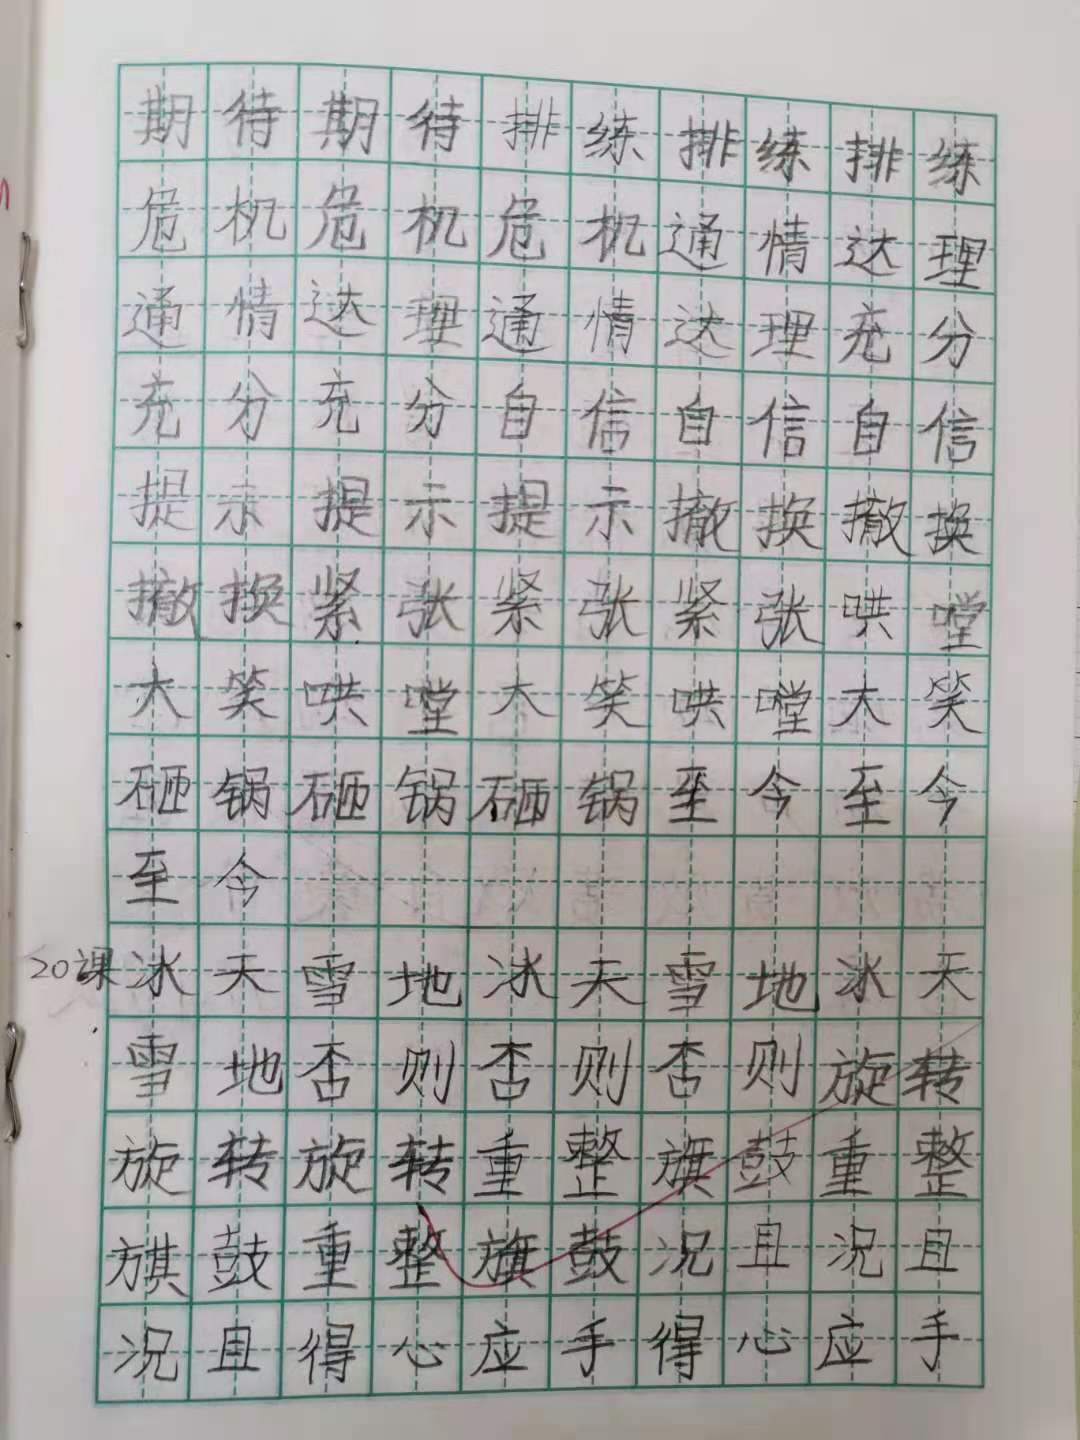 期待期待排练排练排练
危机危机危机通情达理
通情达理通情达理充分
充分充分自信自信自信
提示提示提示撤换撤换
撤换紧张紧张紧张哄嘡
大笑哄嘡大笑哄嘡大笑
砸锅砸锅砸锅至今至今
至今
20课冰天雪地冰天雪地冰天
雪地否则否则否则旋转
旋转旋转重整旗鼓重整
旗鼓重整旗鼓况且况且
况且得心应手得心应手